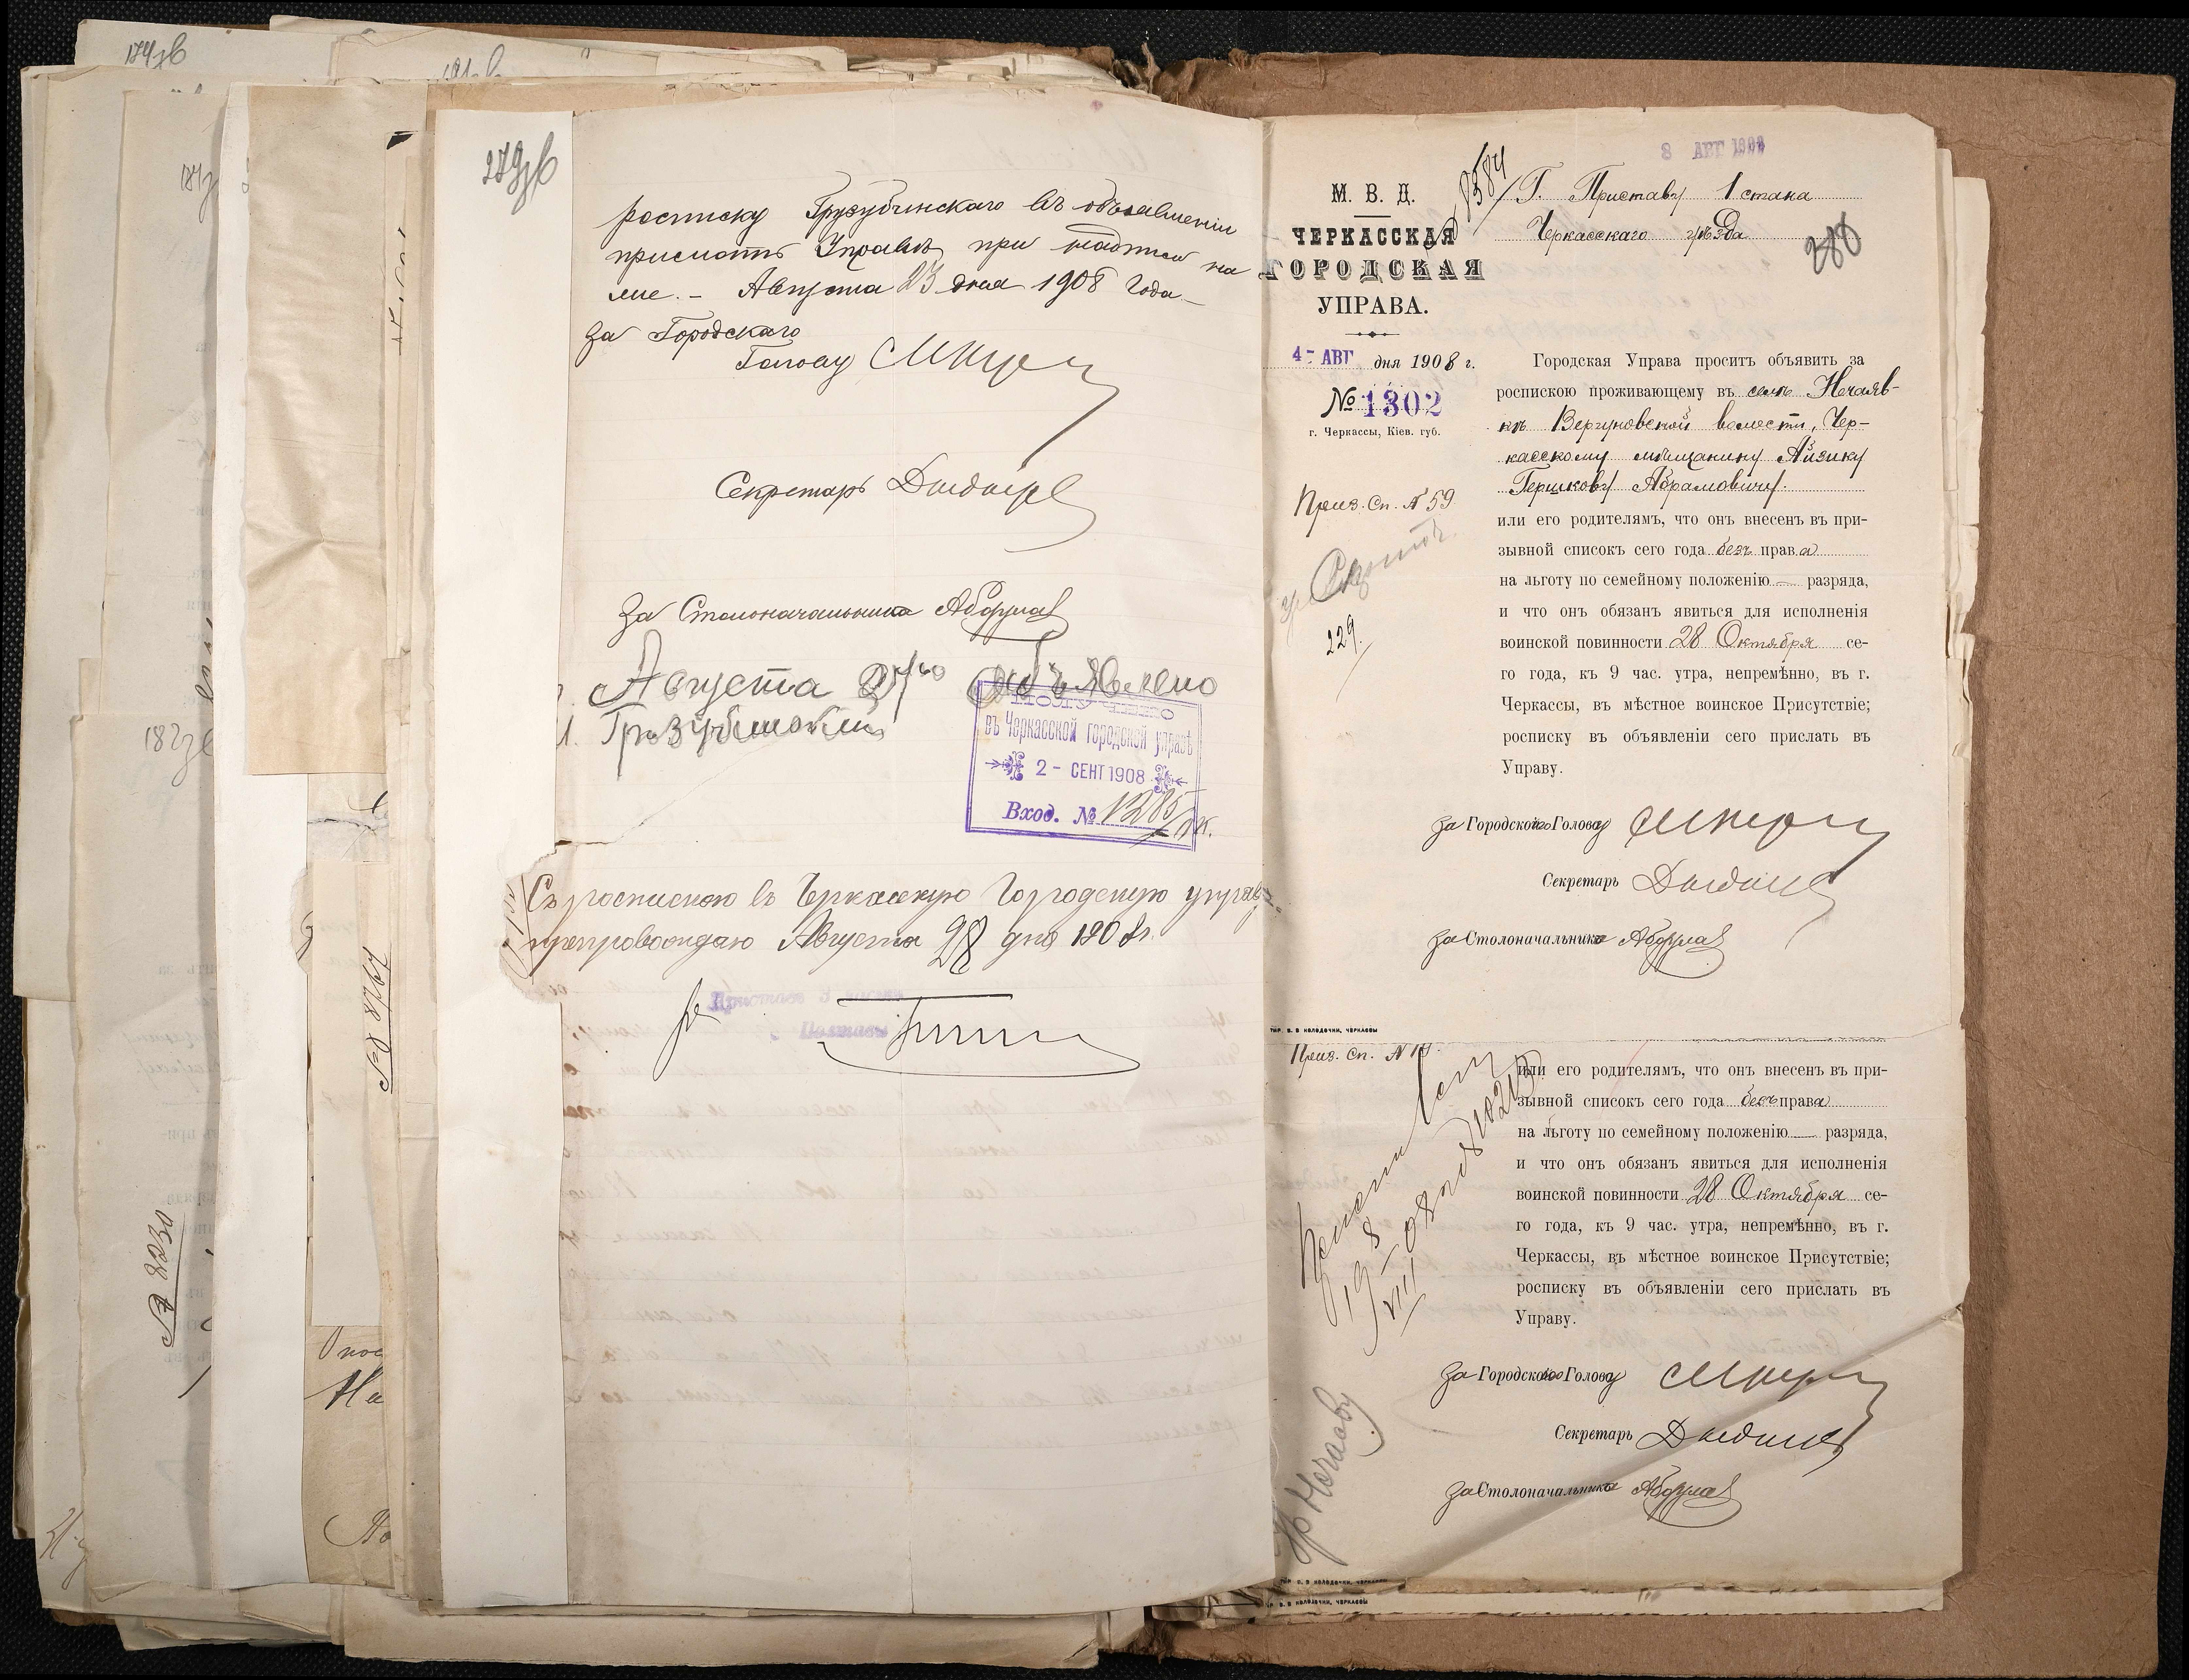 174зв
росписку Грузубинскаго въ объявленіи
прислать Управѣ при надписи на
ме. - Августа 23 дня 1908 года. -
За Городского
Голову
Секретарь
За Столоначальника
Августа 27го объявлено
ПОЛУЧЕНО
въ Черкасской городской управѣ
2 - СЕНТ 1908
Вход. № 1285
Съ роспискою въ Черкасскую Городскую управу
препровождаю Августа 28 дня 1908 г.
Пристав
Полтавы
279зв
182зв
№ 8230
№ 8767
8 АВГ 1908
М. В. Д.
ЧЕРКАССКАЯ
ГОРОДСКАЯ
УПРАВА.
4- АВГ дня 1908 г.
№ 1302
г. Черкассы, Кіев. губ.
Приз. Сп. № 59
229.
Г. Приставу 1 стана
Черкасскаго уѣзда
280
Городская Управа проситъ объявить за
роспискою проживающему въ селѣ Нечаяв-
кѣ Вергуновской волости, Чер-
касскому мѣщанину Айзику
Гершкову Абрамовичу.
или его родителямъ, что онъ внесенъ въ при-
зывной списокъ сего года безъ права
на льготу по семейному положенію — разряда,
и что онъ обязанъ явиться для исполненія
воинской повинности 28 Октября се-
го года, къ 9 час. утра, непремѣнно, въ г.
Черкассы, въ мѣстное воинское Присутствіе;
росписку въ объявленіи сего прислать въ
Управу.
За Городского Голову
Секретарь
За Столоначальника
ТИР. В. В КОЛОДОЧКИ, ЧЕРКАССЫ
Приз. Сп. №
или его родителямъ, что онъ внесенъ въ при-
зывной списокъ сего года безъ права
на льготу по семейному положенію — разряда,
и что онъ обязанъ явиться для исполненія
воинской повинности 28 Октября се-
го года, къ 9 час. утра, непремѣнно, въ г.
Черкассы, въ мѣстное воинское Присутствіе;
росписку въ объявленіи сего прислать въ
Управу.
За Городского Голову
Секретарь
За Столоначальника